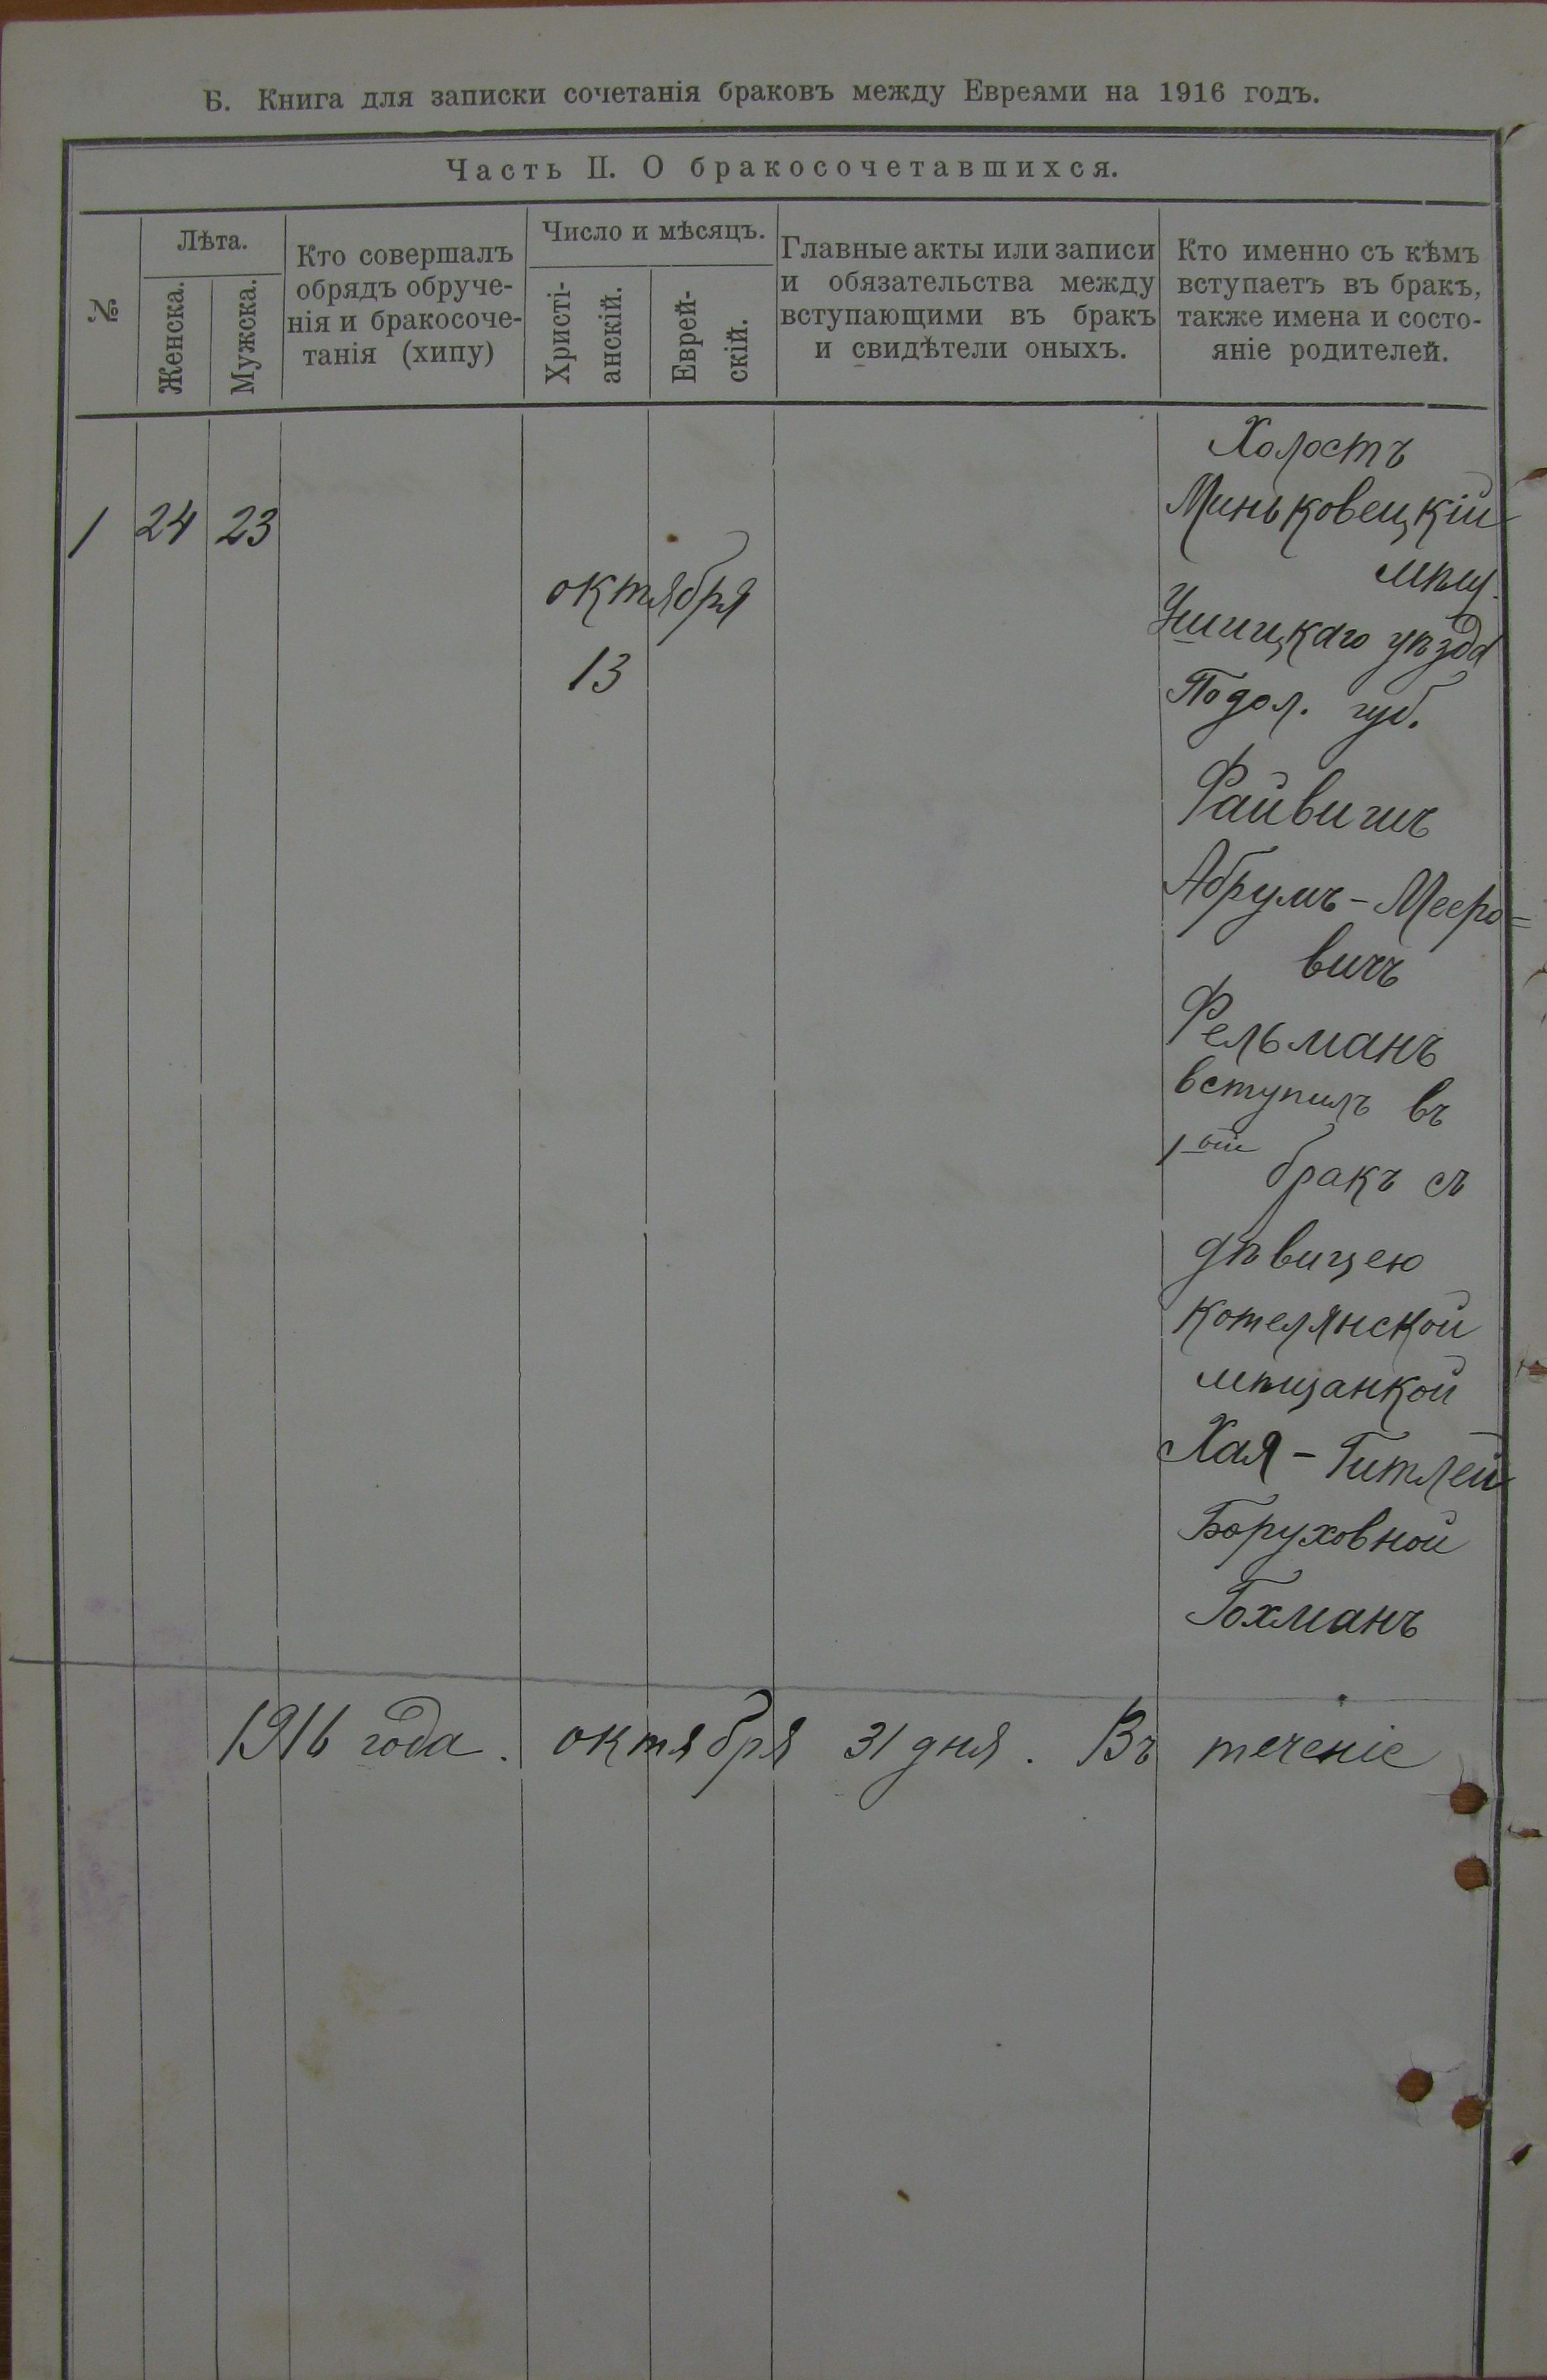 Б. Книга для записки сочетанія браковъ между Евреями на 1916 годъ.
Часть II. О бракосочетавшихся.
№
Лѣта.
Женска.
Мужска.
Кто совершалъ
обрядъ обруче-
нія и бракосоче-
танія (хипу)
Число и мѣсяцъ.
Христі-
анскій.
Еврей-
скій.
Главные акты или записи
и обязательства между
вступающими въ бракъ
и свидѣтели оныхъ.
Кто именно съ кѣмъ
вступаетъ въ бракъ,
также имена и состо-
яніе родителей.
1
24
23
октября
13
Холостъ
Миньковецкій
мѣщ.
Ушицкаго уѣзда
Подол. губ.
Файвишъ
Абрумъ-Мееро=
вичъ
Фельманъ
вступилъ въ
1ый
бракъ съ
дѣвицею
котелянской
мѣщанкой
Хая-Гитлей
Боруховной
Гохманъ
1916 года. октября 31 дня. Въ теченіе